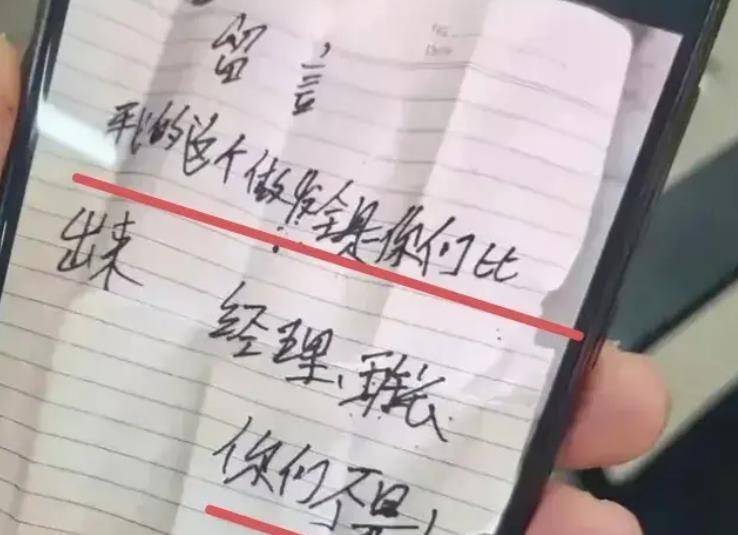 留言
我的这个做发全是你们比
出来
经理、
你们不是